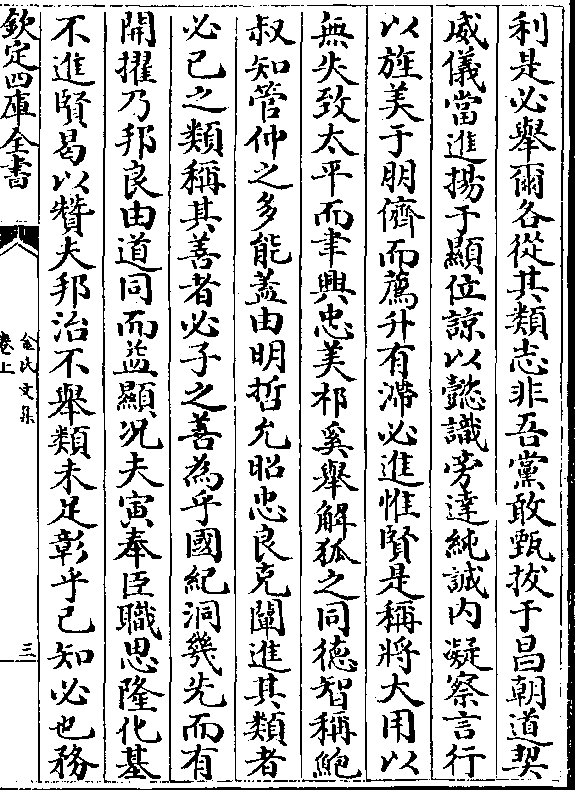 利是必舉爾各從其類志非吾黨敢甄拔于昌朝道契
威儀當進揚于顯位諒以懿識旁達純誠内凝察言行
以旌美于朋儕而薦升有滯必進惟賢是稱將大用以
無失致太平而聿興忠美祁奚舉解狐之同德智稱鮑
叔知管仲之多能葢由明哲允昭忠良克闡進其類者
必已之類稱其善者必子之善為乎國紀洞幾先而有
開擢乃邦良由道同而益顯况夫寅奉臣職思隆化基
不進賢曷以贊夫邦治不舉類未足彰乎己知必也務
欽定四庫全書
金氏文集
卷上
三